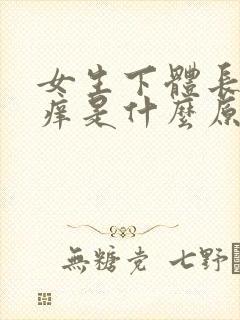 女生下體長
痒是什麼原
無糖党 七野